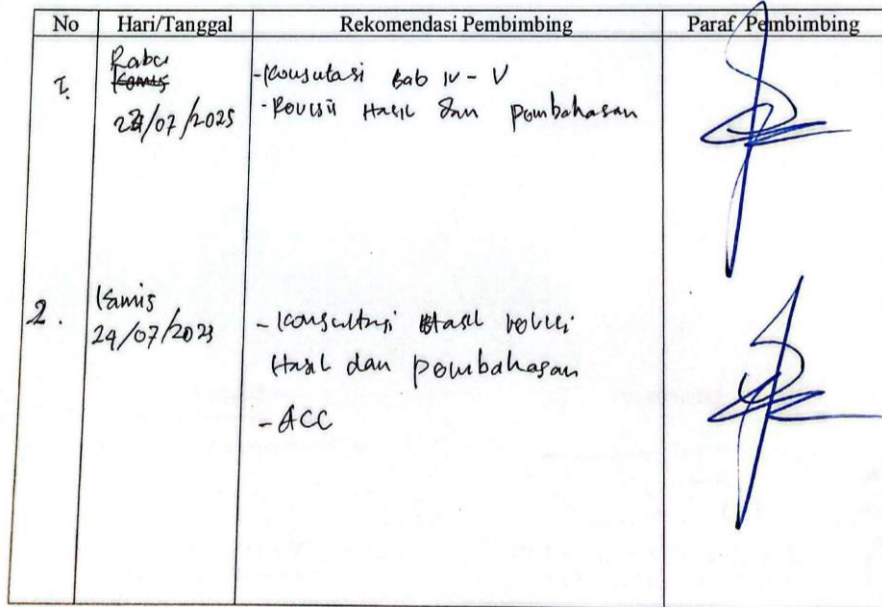 No Hari/Tanggal Rekomendasi Pembimbing Paraf Pembimbing
1. Rabu
Kamis
/07/2025
-Konsutasi Bab IV - V
-Revisi Hasil dan pembahasan
2. Kamis
24/07/2025
- Konsultasi Hasil revisi
Hasil dan pembahasan
- ACC